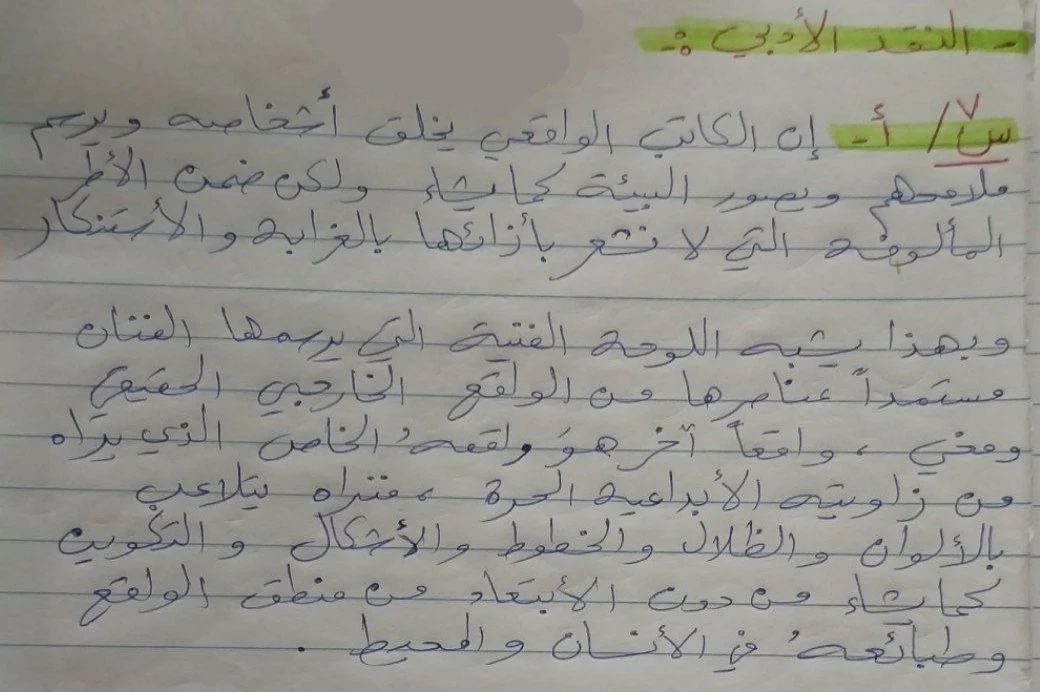 - النقد الأدبي :-
س٧/ أ- إن الكاتب الواقعي يخلق أشخاصه ويرسم
ملامحهم ويصور البيئة كما يشاء ولكن ضمن الأطر
المألوفة التي لا نشعر بأزائها بالغرابة والأستنكار
وبهذا يشبه اللوحة الفنية التي يرسمها الفنان
مستمداً عناصرها من الواقع الخارجي الحقيقي
، واقعاً آخر هوَ واقعهُ الخاص الذي يراه
من زاويته الأبداعية الحرة ، فنراه يتلاعب
بالألوان والظلال والخطوط والأشكال والتكوين
كما يشاء من دون الأبتعاد من منطق الواقع
وطبائعهُ في الأنسان والمحيط .